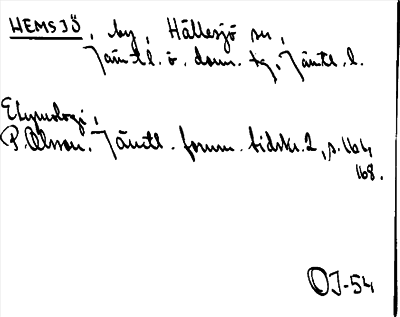 HEMSJÖ, by, Hällesjö sn,
Jämtl. ö. doms. tg, Jämtl. l.
Etymologi,
P. Olsson. Jämtl. fornm. tidskr. 2, s. 164,
168.
OJ-54